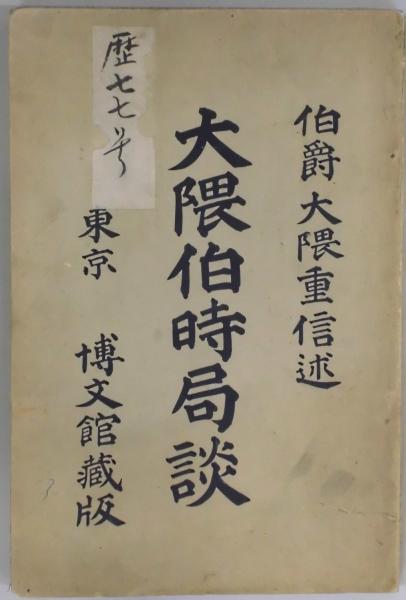 伯爵大隈重信述
大隈伯時局談
東京 博文館藏版
歴七七号